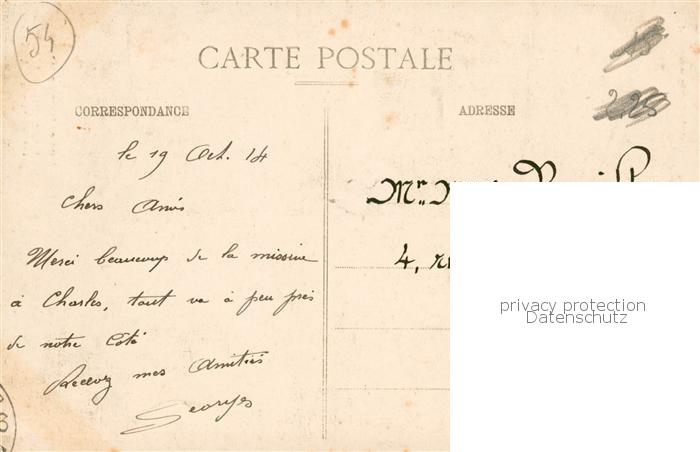 54
CARTE POSTALE
2,25
CORRESPONDANCE
ADRESSE
le 19 Oct. 14
Chers Amis
Merci beaucoup de la missive
à Charles, tout va à peu près
de notre Côté
Recevez mes Amitiés
Georges
Mr.
4,
privacy protection
Datenschutz